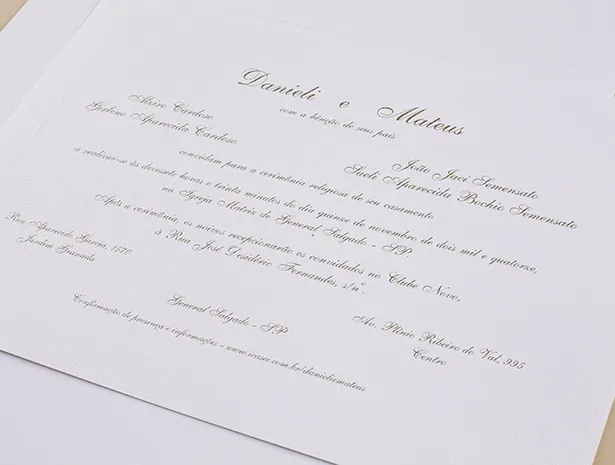 Danieli e Mateus
com a bênção de seus pais
Alziro Cardoso
Girlene Aparecida Cardoso
João Jaci Semensato
Sueli Aparecida Bochio Semensato
convidam para a cerimônia religiosa de seu casamento
a realizar-se às dezessete horas e trinta minutos do dia quinze de novembro de dois mil e quatorze,
na Igreja Matriz de General Salgado - SP.
Após a cerimônia, os noivos recepcionarão os convidados no Clube Novo,
à Rua José Desidério Fernandes, s/nº.
Rua Aparecido Garcia, 1570
Jardim Granada
Av. Plínio Ribeiro do Val, 995
Centro
General Salgado - SP
Confirmação de presença e informações - www.icasei.com.br/danieliemateus